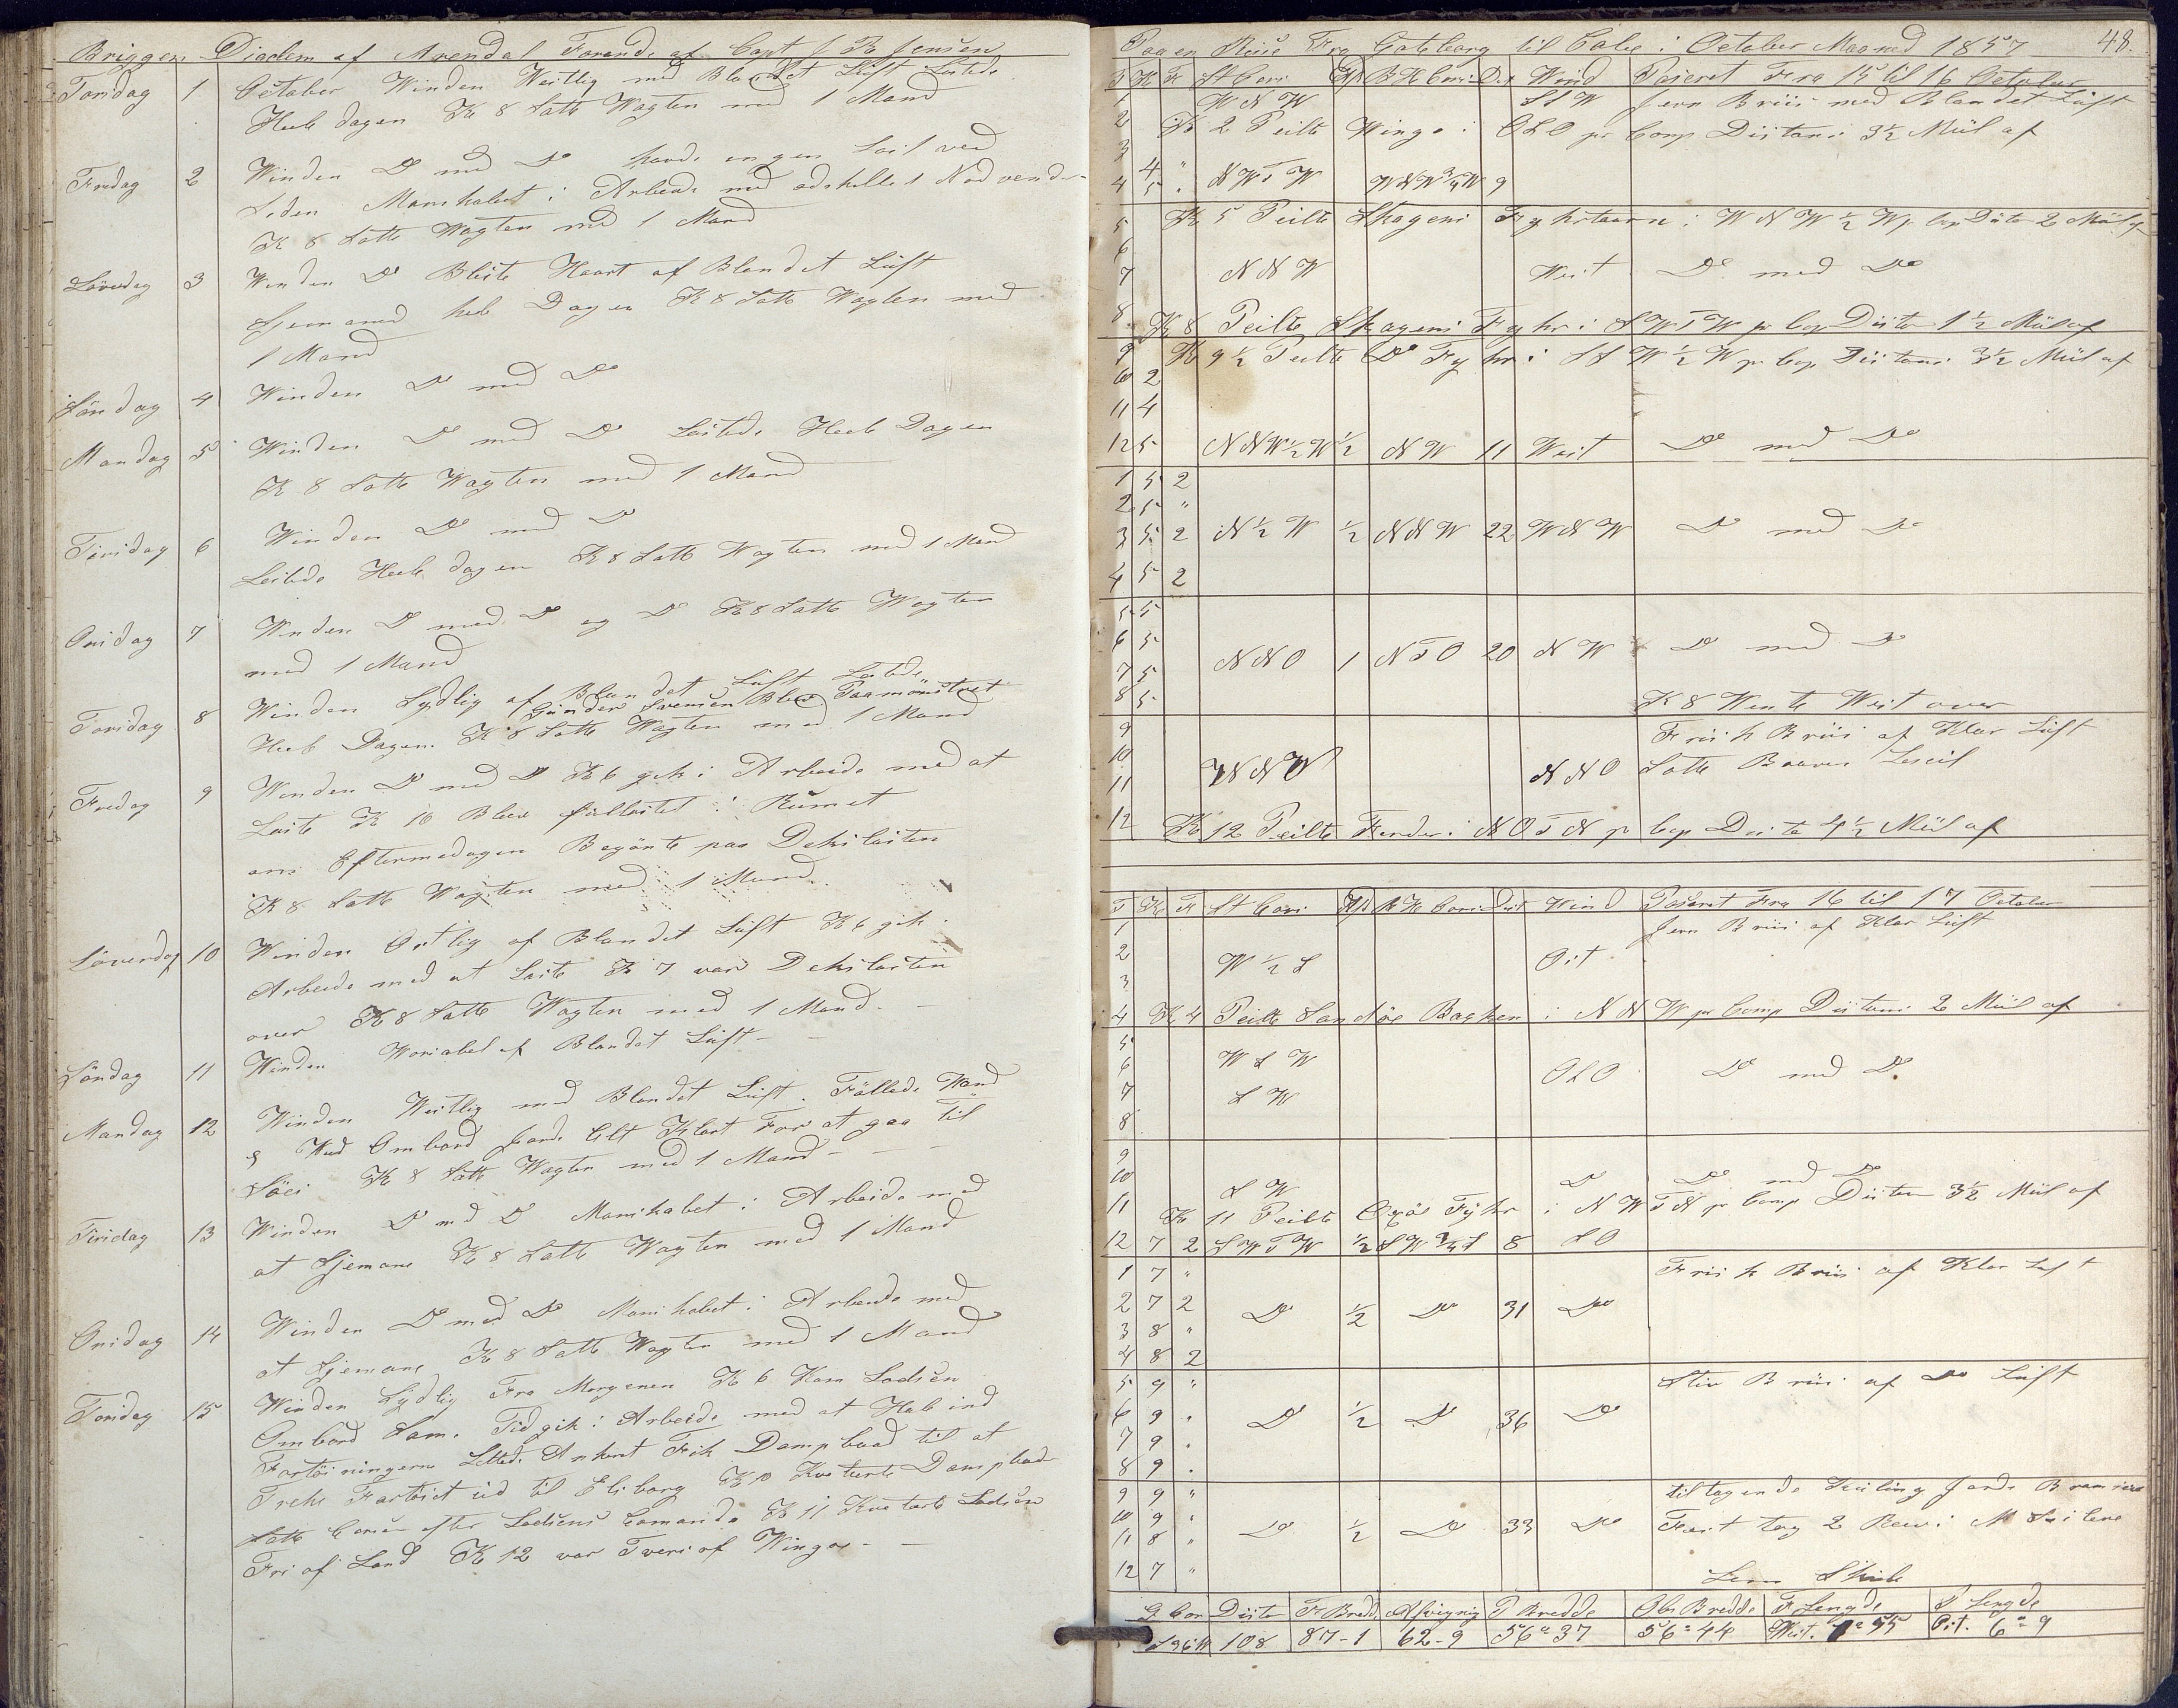 Briggen Diadem af Arendal Förende af Capt J B Jensen
Torsdag 1 October Winden Westlig med Blandet Luft Lastede
Heele dagen Kl 8 Satte Wagten med 1 Mand
Fredag 2 Winden Do med Do havde ingen Last ved
Siden Manskabet i Arbeide med adskilled Nödvendi-
Kl 8 Satte Wagten med 1 Mand
Löverdag 3 Winden Do Bleste Haart af Blandet Luft
hele Dagen Kl 8 Satte Wagten med
1 Mand
Söndag 4 Winden Do med Do
Mandag 5 Winden Do med Do Lastede Heele Dagen
Kl 8 Satte Wagten med 1 Mand
Tirsdag 6 Winden Do med Do
Lastede Heele dagen Kl 8 Satte Wagten med 1 Mand
Onsdag 7 Winden Do med Do og Do Kl 8 Satte Wagten
med 1 Mand
Torsdag 8 Winden Sydlig af Blandet Luft Lastede
Gunder Svensen Blev Paamönstret
Heele Dagen. Kl 8 Satte Wagten med 1 Mand
Fredag 9 Winden Do med Do Kl 6 gik i Arbeide med at
Laste Kl 10 Blev fuldlastet i Rümet
om Eftermedagen Begönte paa Dekslasten
Kl 8 Satte Wagten med 1 Mand
Löverdag 10 Winden Ostlig af Blandet Luft Kl 6 gik i
Arbeide med at Laste Kl 7 var Dekslasten
over Kl 8 Satte Wagten med 1 Mand -
Söndag 11 Winden Wariabel af Blandet Luft - -
Mandag 12 Winden Westlig med Blandet Luft. Fyllede Wand
& Wed Ombord Alt Klart For at gaa Til
Söes Kl 8 Satte Wagten med 1 Mand - - -
Tirsdag 13 Winden Do med Do Manskabet i Arbeide med
at Kl 8 Satte Wagten med 1 Mand
Onsdag 14 Winden Do med Do Manskabet i Arbeide med
at Kl 8 Satte Wagten med 1 Mand
Torsdag 15 Winden Sydlig Fra Morgenen Kl 6 Kom Lodsen
Ombord Sam. Tid gik i Arbeide med at Hale ind
Fortöiningerne Lettede Ankeret Fik Dampbaad til at
Treke Fartöiet ud til Elsborg Kl 10 Kvitterte Dampbaad
Satte Corsen efter Lodsens Comando Kl 11 Kvitterte Lodsen
Fri af Land Kl 12 var Tvers af Winga - -
Paa en Reise Fra Gøteborg til Calee i October Maaned 1857 48.
T K F St Cors Afd BK Cors Dist Wind Paseret Fra 15 til 16 October
1 W N W SSW Jevn Briis med Blandet Luft
2 Kl 2 Peilte Winga i OSO pr Comp Distans 3½ Miil af
3
4 4 "
5 " NWTW WNW¾W 9
5 Kl 5 Peilte Skagens Fyhrtaarn i WNW½W pr Cop Distn 2 Miil af
6
7 NNW West Do med Do
8 Kl 8 Peilte Skagens Fyhr i SWTW pr Cop Distn 1½ Miil af
9 Kl 9½ Peilte Do Fyhr i SSW½W pr Cop Distans 3½ Miil af
10 2
11 4
12 5 NNW½W ½ NW 11 West Do med Do
1 5 2
2 5 "
3 5 2 N½W ½ NNW 22 WNW Do med Do
4 5 2
5 5
6 5 NNO 1 NTO 20 NW Do med Do
7 5
8 5 Kl 8 Wente West over
9 Frisk Briis af Klar Luft
10 WNW NNO Satte Baavens Leseil
11
12 Kl 12 Peilte Ferder i NOTN pr Cop Distn 4½ Miil af
T K F St Cors Afd BK Cors Dist Wind Paseret Fra 16 til 17 October
1 Jevn Briis af Klar Luft
2 W½S Ost
3
4 Kl 4 Peilte Sandöe Bakken i NNW pr Comp Distans 2 Miil af
5
6 WSW OSO Do med Do
7 SW
8
9
10 SW Do Do med Do
11 Kl 11 Peilte Oxöe Fyhr i NWTN pr Comp Distan 3½ Miil af
12 7 2 SWTW ½ SW¾S 8 SO
1 7 " Frisk Briis af Klar Luft
2 7 2 Do ½ Do 31 Do
3 8 "
4 8 2
5 9 " Stiv Briis af Do Luft
6 9 " Do ½ Do 36 Do
7 9 "
8 9 "
9 9 " tiltagende Kuling
10 9 " Do ½ Do 33 Do Fast tog 2 Rev i M Seilene
11 8 "
12 7 " Lens Skib
G Cor Distn F Bredd Afvignig P Bredde Obs Bredde F Lengde P Lengde
S 36 W 108 87-1 62-9 56° 37 56° 44 West. 1° 55 Ost. 6° 9